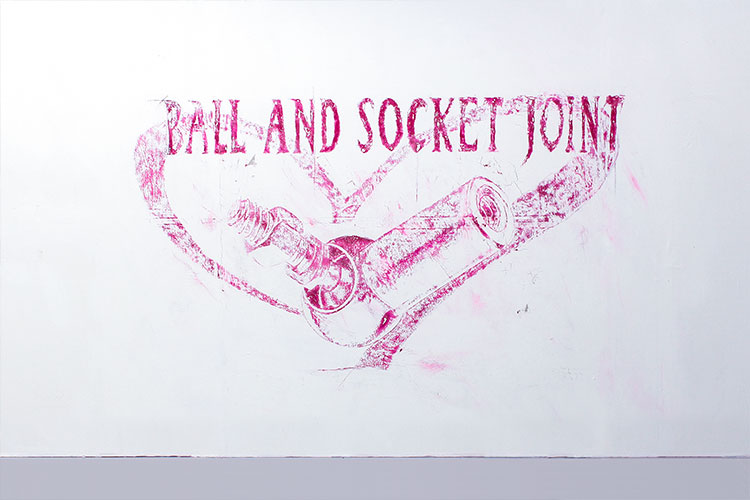 BALL AND SOCKET JOINT